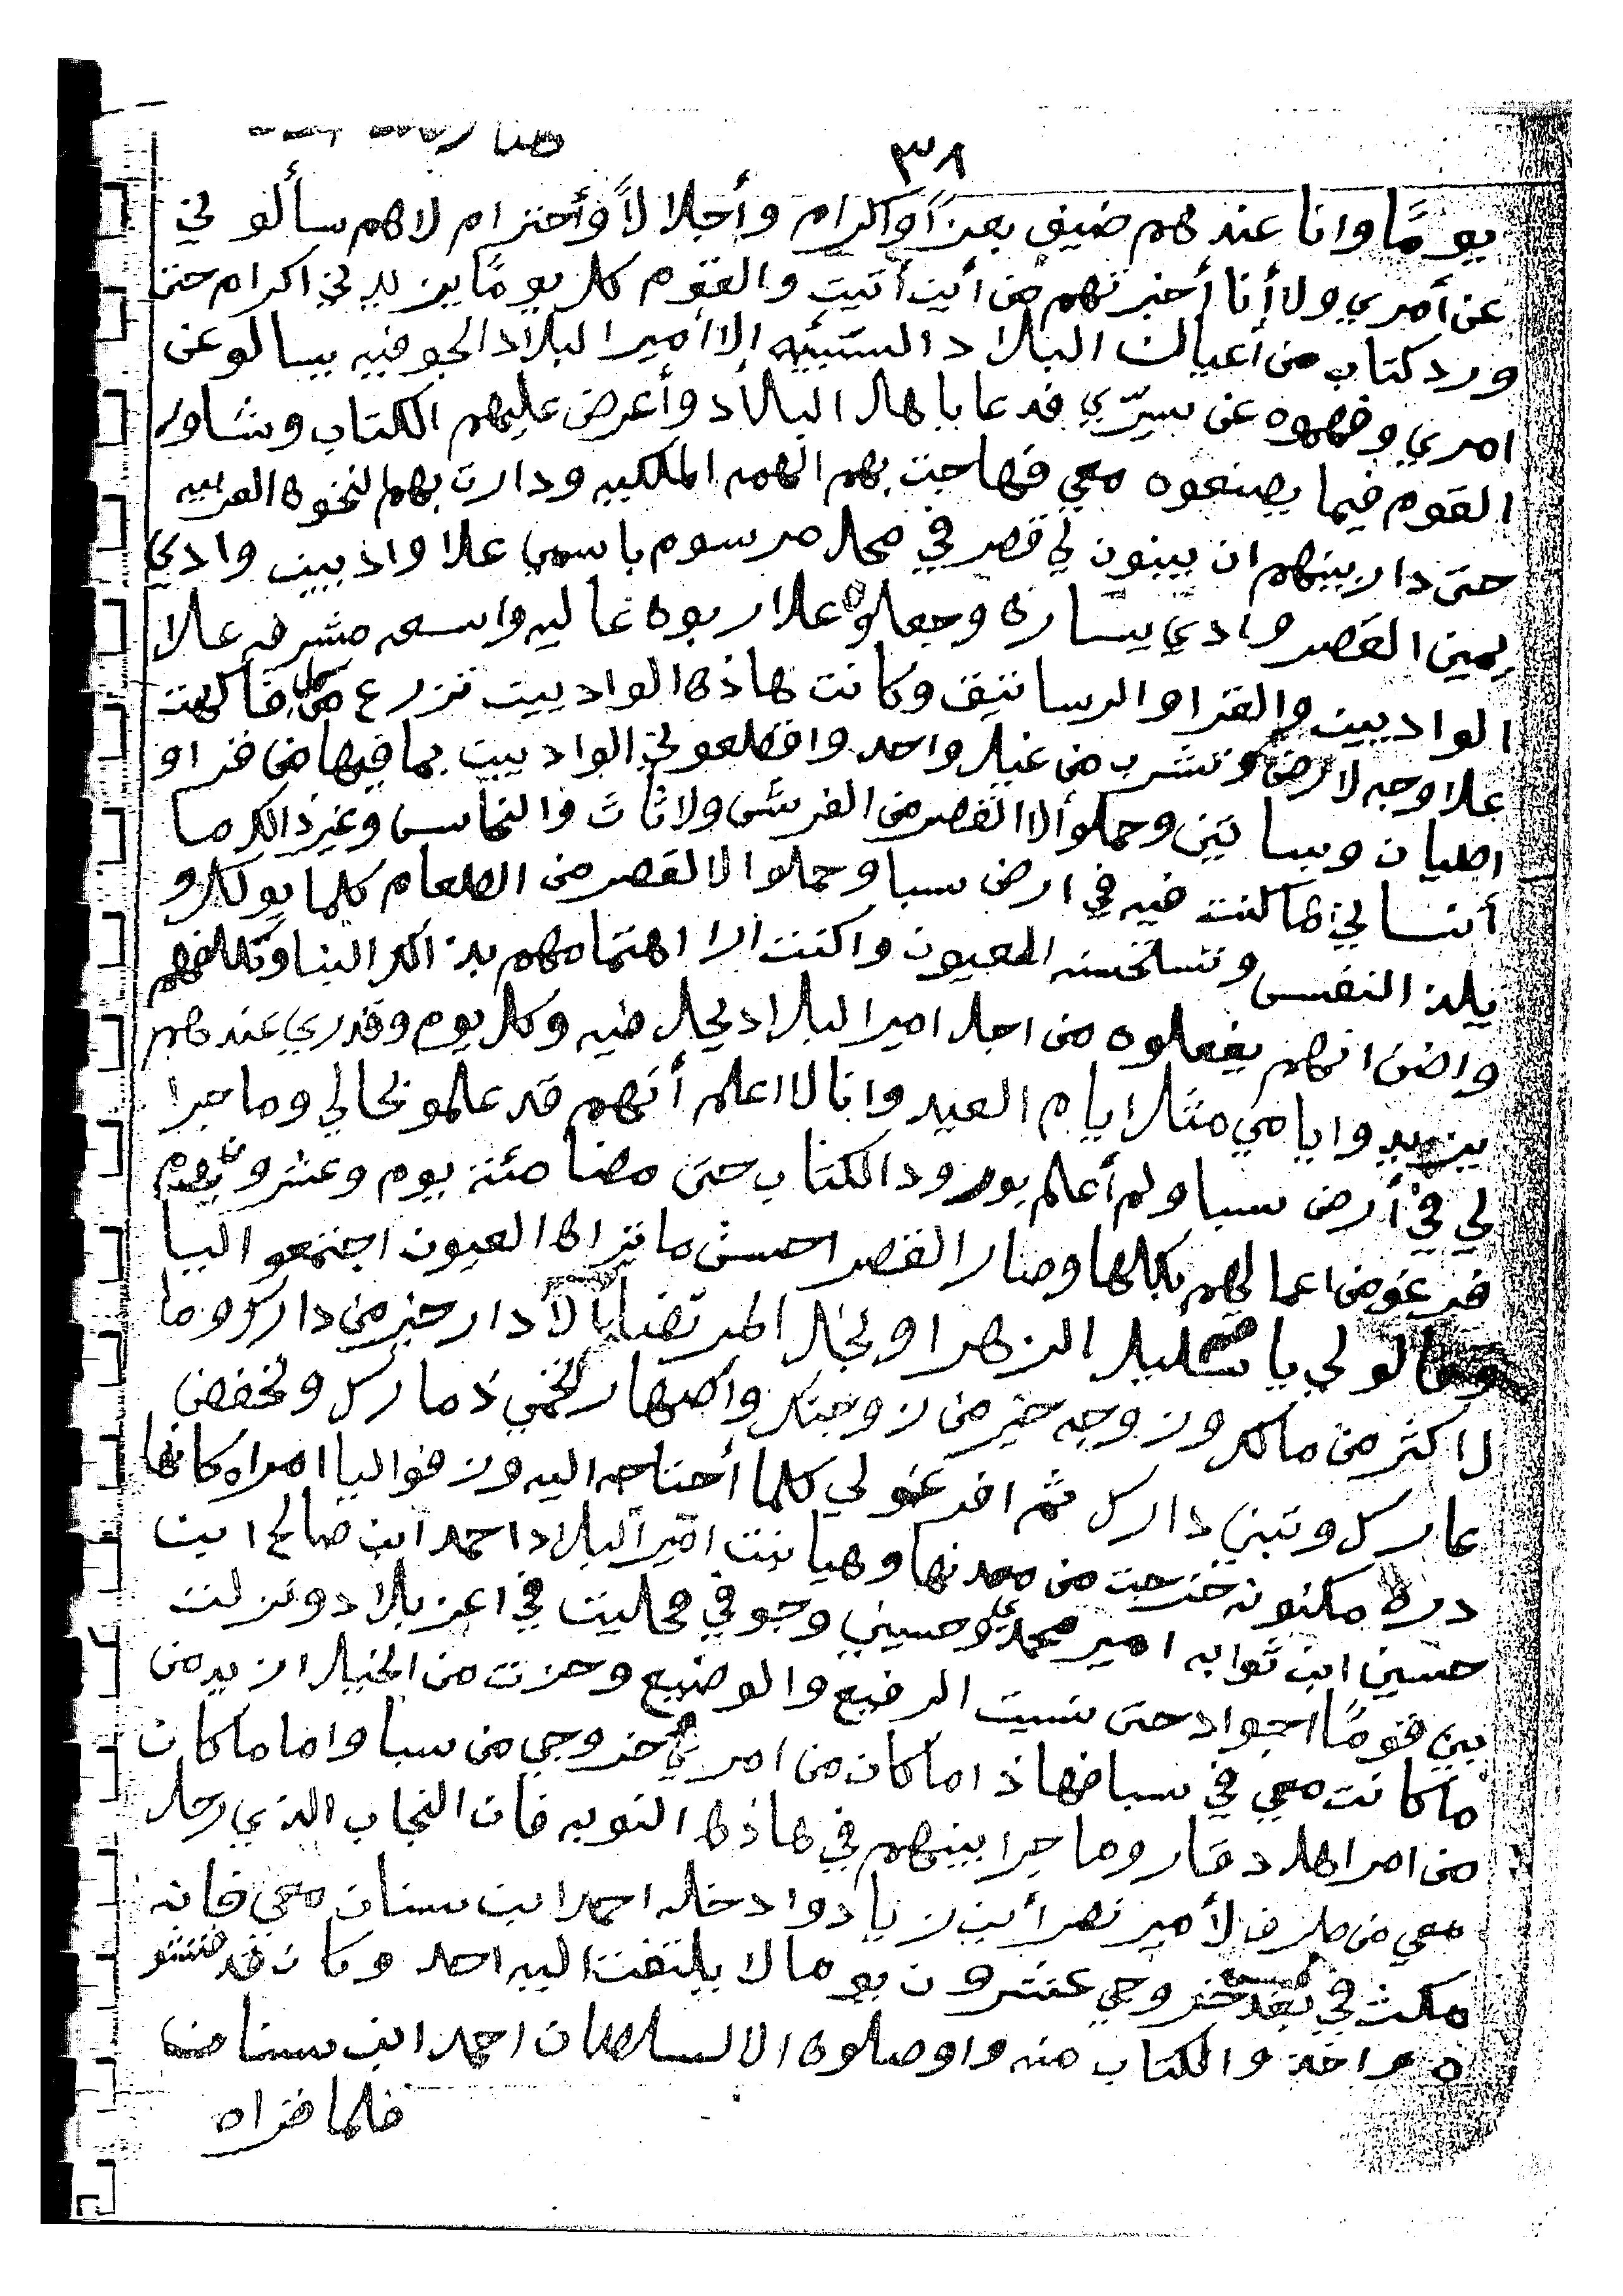 ٣٨
يومًا وانا عندهم ضيف بعزاً واكرام وأجلا لاً وأحترام لاهم سألو ني
عن أمري ولا أنا أخبرتهم من أين أتيت والقوم كل يومًا يزيد ني اكرام حتى
ورد كتاب من أعيان البلاد السبئيه الا امير البلاد الجوفيه يسالو عن
امري وفهموه عن بسرّي فدعا باهل البلاد وأعرض عليهم الكتاب وشاور
القوم فيما يصنعوه معي فهاجت بهم الهمه الملكيه ودارت بهم لنخوه العربيه
حتى دار بينهم ان يبنون لي قصر في محل مرسوم باسمي علا واديين وادي
يمين القصر وادي يساره وجعلوه علا ربوه عاليه واسعه مشرفه علا
الواديين والقرا والرساتيق وكانت هاذه الواديين تزرع من كل فاكهت
علا وجه لارض وتشرب من غيل واحد واقطعو لي الواديين بما فيها من قرا و
اطيان وبساتين وحملو ألا القصر من الفرش ولاثاث والنحاس وغير ذالك ما
أنسا لي ما كنت فيه في ارض سبا وحملوا الا لقصر من الطعام كلما يوكل و
يلذ النفس وتستحسنه العيون واكنت ارا اهتمامهم بذ الك البنا وتكلفهم
واضن انهم يفعلوه من اجل امير البلاد يحل فيه وكل يوم وقدري عندهم
يزيد وايامي مثل ايام العيد وانا لا اعلم أنهم قد علمو بحالي وما جرا
لي في أرض سبا ولم أعلم بورود الكتاب حتى مضا مئة يوم وعشرون يوم
فرغو من اعمالهم بكلها وصار القصر احسن ما تراه العيون اجتمعو اليا
وقالو لي يا سليل الزهرا ونجل المرتضا لا دار خير من دارك وما
لاكثر من مالك وزوجه خير من زوجتك واصهار تحمي ذمارك وتخفض
عارك وتبني دارك ثم افرغو لي كلما أحتاجه اليه وزفو اليا امراه كانها
دره مكنونه خرجت من معدنها وهيا بنت امير البلاد احمد ابن صالح ابن
حسين ابن ثوابه امير محمدي وحسيني وجوفي فحليت في اعز بلاد ونزلت
بين قومًا اجواد حتى نسيت الرفيع والوضيع وحزت من الخيل ازيد من
ما كانت معي في سبا فهاذا ما كان من امري خروجي من سبا واما ما كان
من امر اهل دمار وما جرا بينهم في هاذه النوبه فان النجاب الذي رحل
معي من طرف لأمير نصر أبن زياد وادخله احمد ابن سنان معي فانه
مكث في بعد خروجي عشرون يوما لا يلتفت اليه احد وكان قد فتشو
ه واخذ والكتاب منه واوصلوه الا لسلطان احمد ابن سنان
فلما قراه